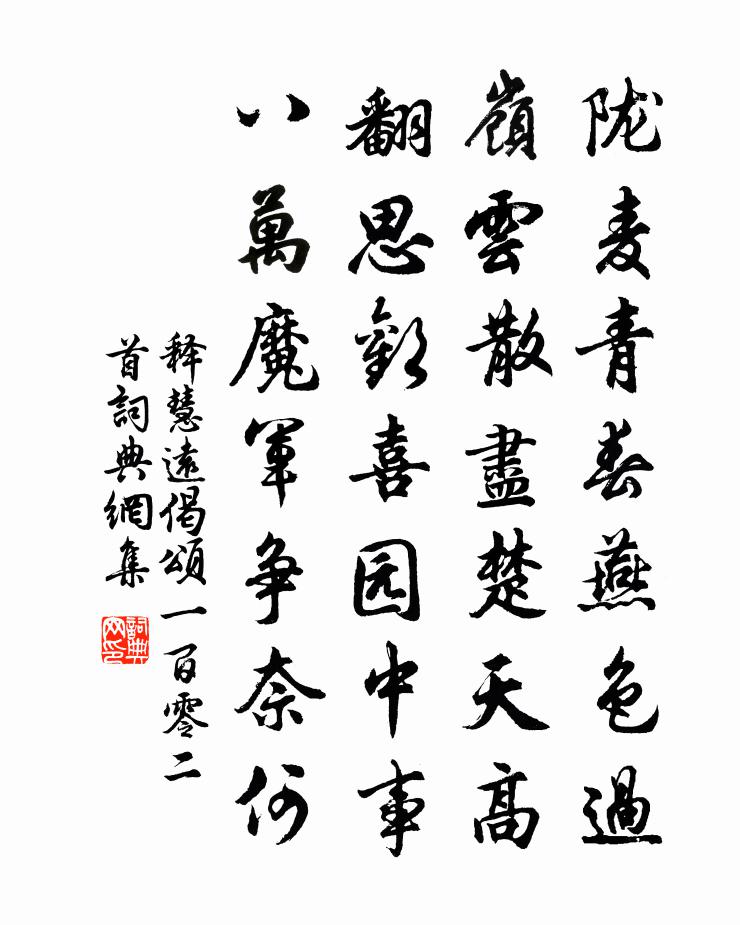 陇麦青春燕色過
嶺雲散盡楚天高
翻思歡喜园中事
八萬魔軍争奈何
释慧遠偈頌一百零二
首詞典網集
詞典
网印